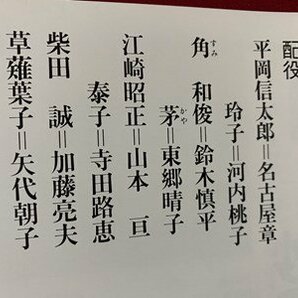 配役
平岡信太郎＝名古屋章
玲子＝河内桃子
角　和俊＝鈴木慎平
すみ
茅＝東郷晴子
かや
江崎昭正＝山本　亘
泰子＝寺田路恵
柴田　誠＝加藤亮夫
草薙葉子＝矢代朝子